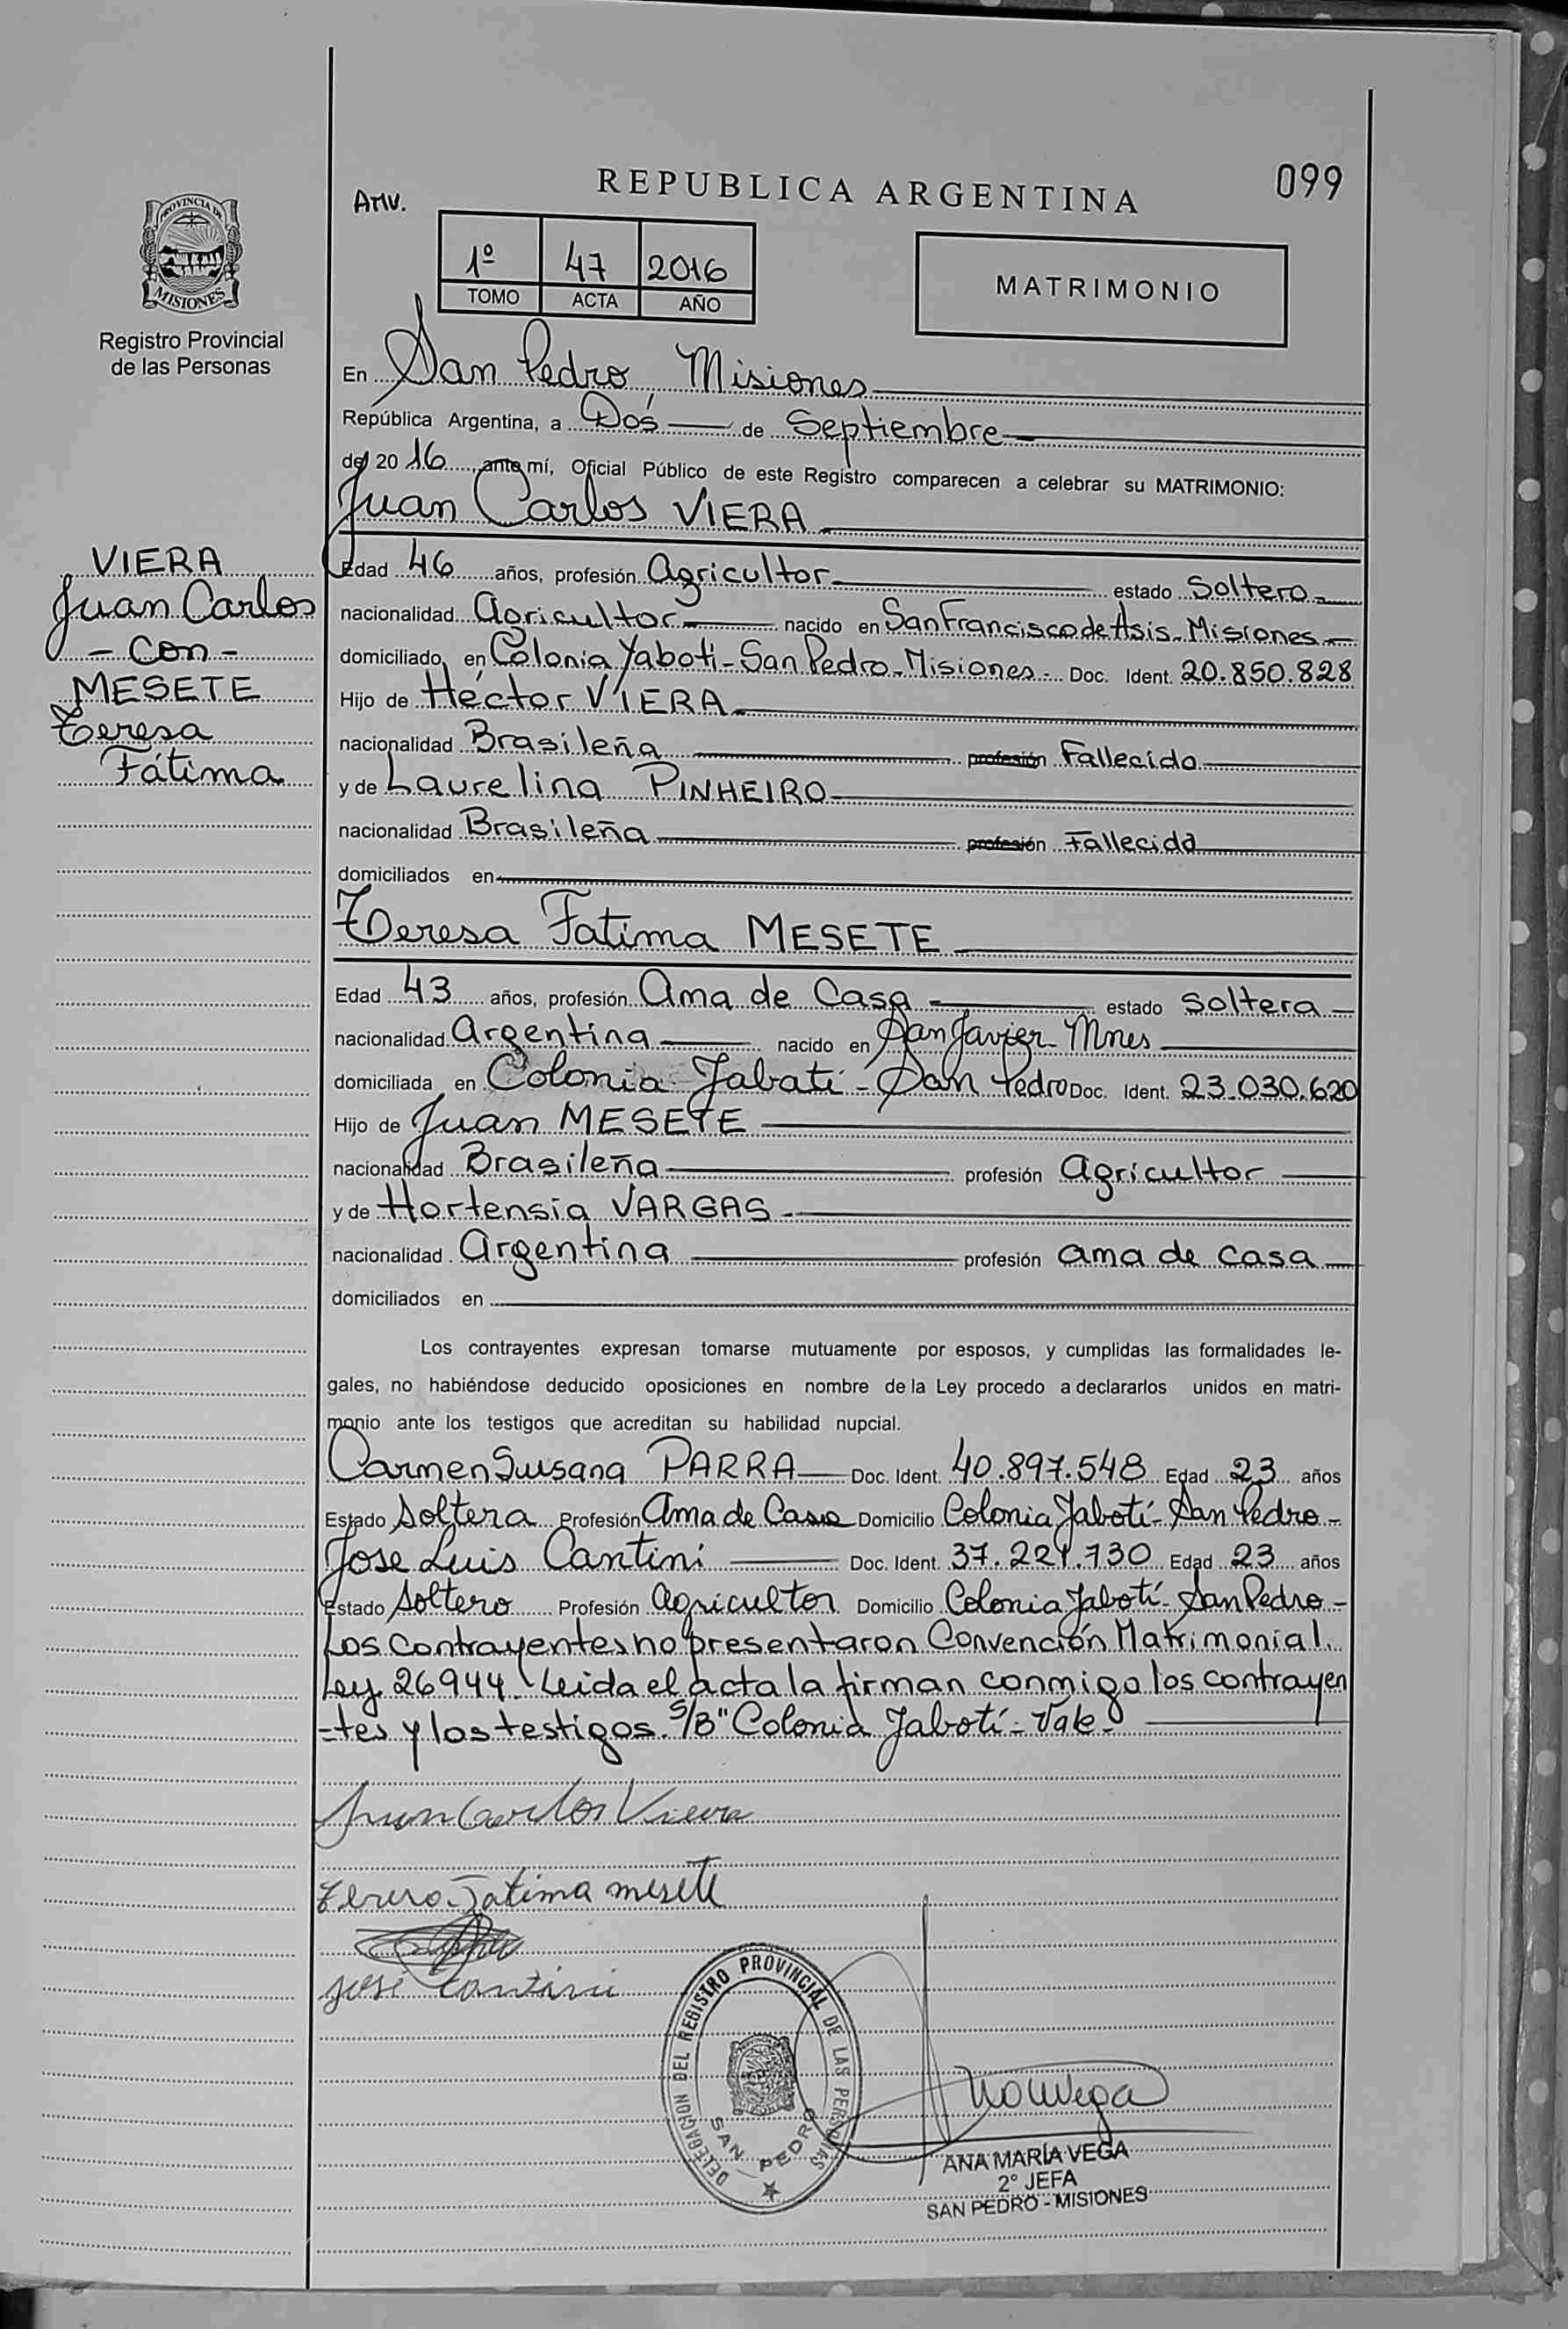 REPUBLICA ARGENTINA
099
Ariv.
1º 47 2016
TOMO ACTA AÑO
MATRIMONIO
PROVINCIA DE MISIONES
Registro Provincial
de las Personas
VIERA
Juan Carlos
- Con -
MESETE
Teresa
Fátima
En San Pedro, Misiones
República Argentina, a Dós de Septiembre
de 20 16, ante mí, Oficial Público de este Registro comparecen a celebrar su MATRIMONIO:
Juan Carlos VIERA
Edad 46 años, profesión Agricultor estado Soltero
nacionalidad Agricultor nacido en San Francisco de Asis - Misiones
domiciliado en Colonia Yaboti - San Pedro - Misiones - Doc. Ident. 20.850.828
Hijo de Héctor VIERA
nacionalidad Brasileña profesión Fallecido
y de Laurelina PINHEIRO
nacionalidad Brasileña profesión Fallecida
domiciliados en
Teresa Fatima MESETE
Edad 43 años, profesión Ama de Casa estado Soltera
nacionalidad Argentina nacido en San Javier Mnes
domiciliada en Colonia Jabatí - San Pedro Doc. Ident. 23.030.620
Hijo de Juan MESETE
nacionalidad Brasileña profesión Agricultor
y de Hortensia VARGAS
nacionalidad Argentina profesión ama de casa
domiciliados en
Los contrayentes expresan tomarse mutuamente por esposos, y cumplidas las formalidades le-
gales, no habiéndose deducido oposiciones en nombre de la Ley procedo a declararlos unidos en matri-
monio ante los testigos que acreditan su habilidad nupcial.
Carmen Susana PARRA Doc. Ident. 40.897.548 Edad 23 años
Estado Soltera Profesión Ama de Casa Domicilio Colonia Jabotí - San Pedro -
Jose Luis Cantini Doc. Ident. 37.221.730 Edad 23 años
Estado Soltero Profesión Agricultor Domicilio Colonia Jabotí - San Pedro -
Los contrayentes no presentaron Convención Matrimonial.
Ley 26944. Leida el acta la firman conmigo los contrayen
-tes y los testigos. S/B "Colonia Jabotí - Vale -
Juan Carlos Viera
Teresa Fatima mesete
José Cantini
DELEGACION DEL REGISTRO PROVINCIAL DE LAS PERSONAS
SAN PEDRO
ANA MARÍA VEGA
2º JEFA
SAN PEDRO - MISIONES